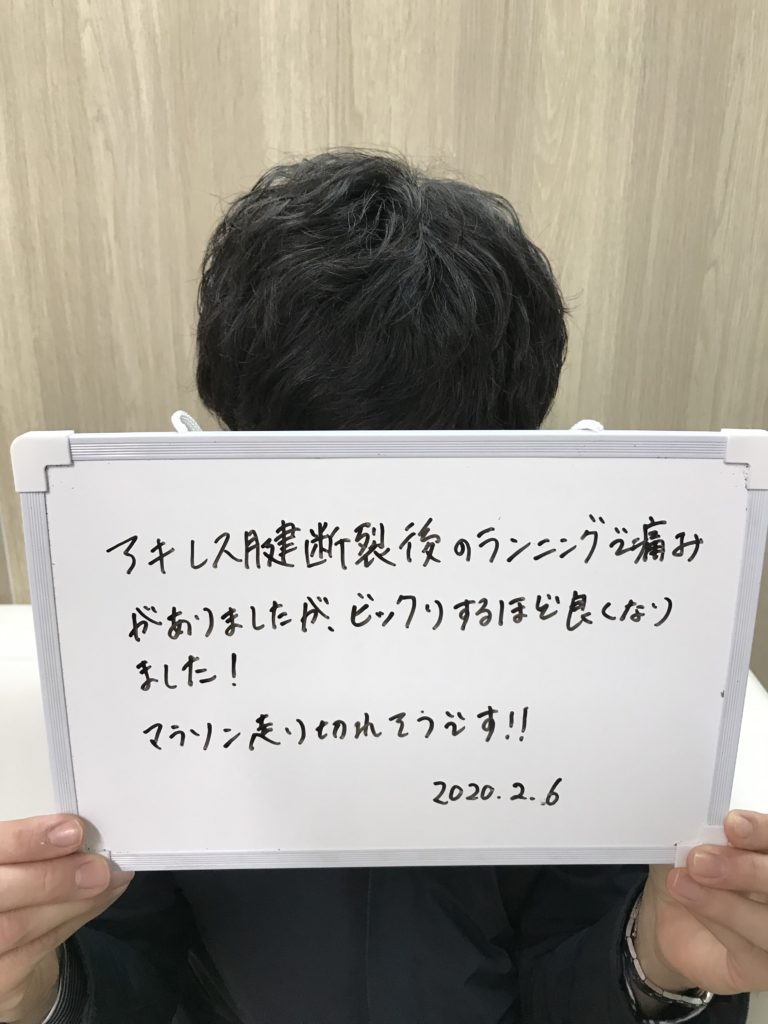 アキレス腱断裂後のランニングで痛み
がありましたが、ビックリするほど良くなり
ました!
マラソン走り切れそうです!!
2020.2.6